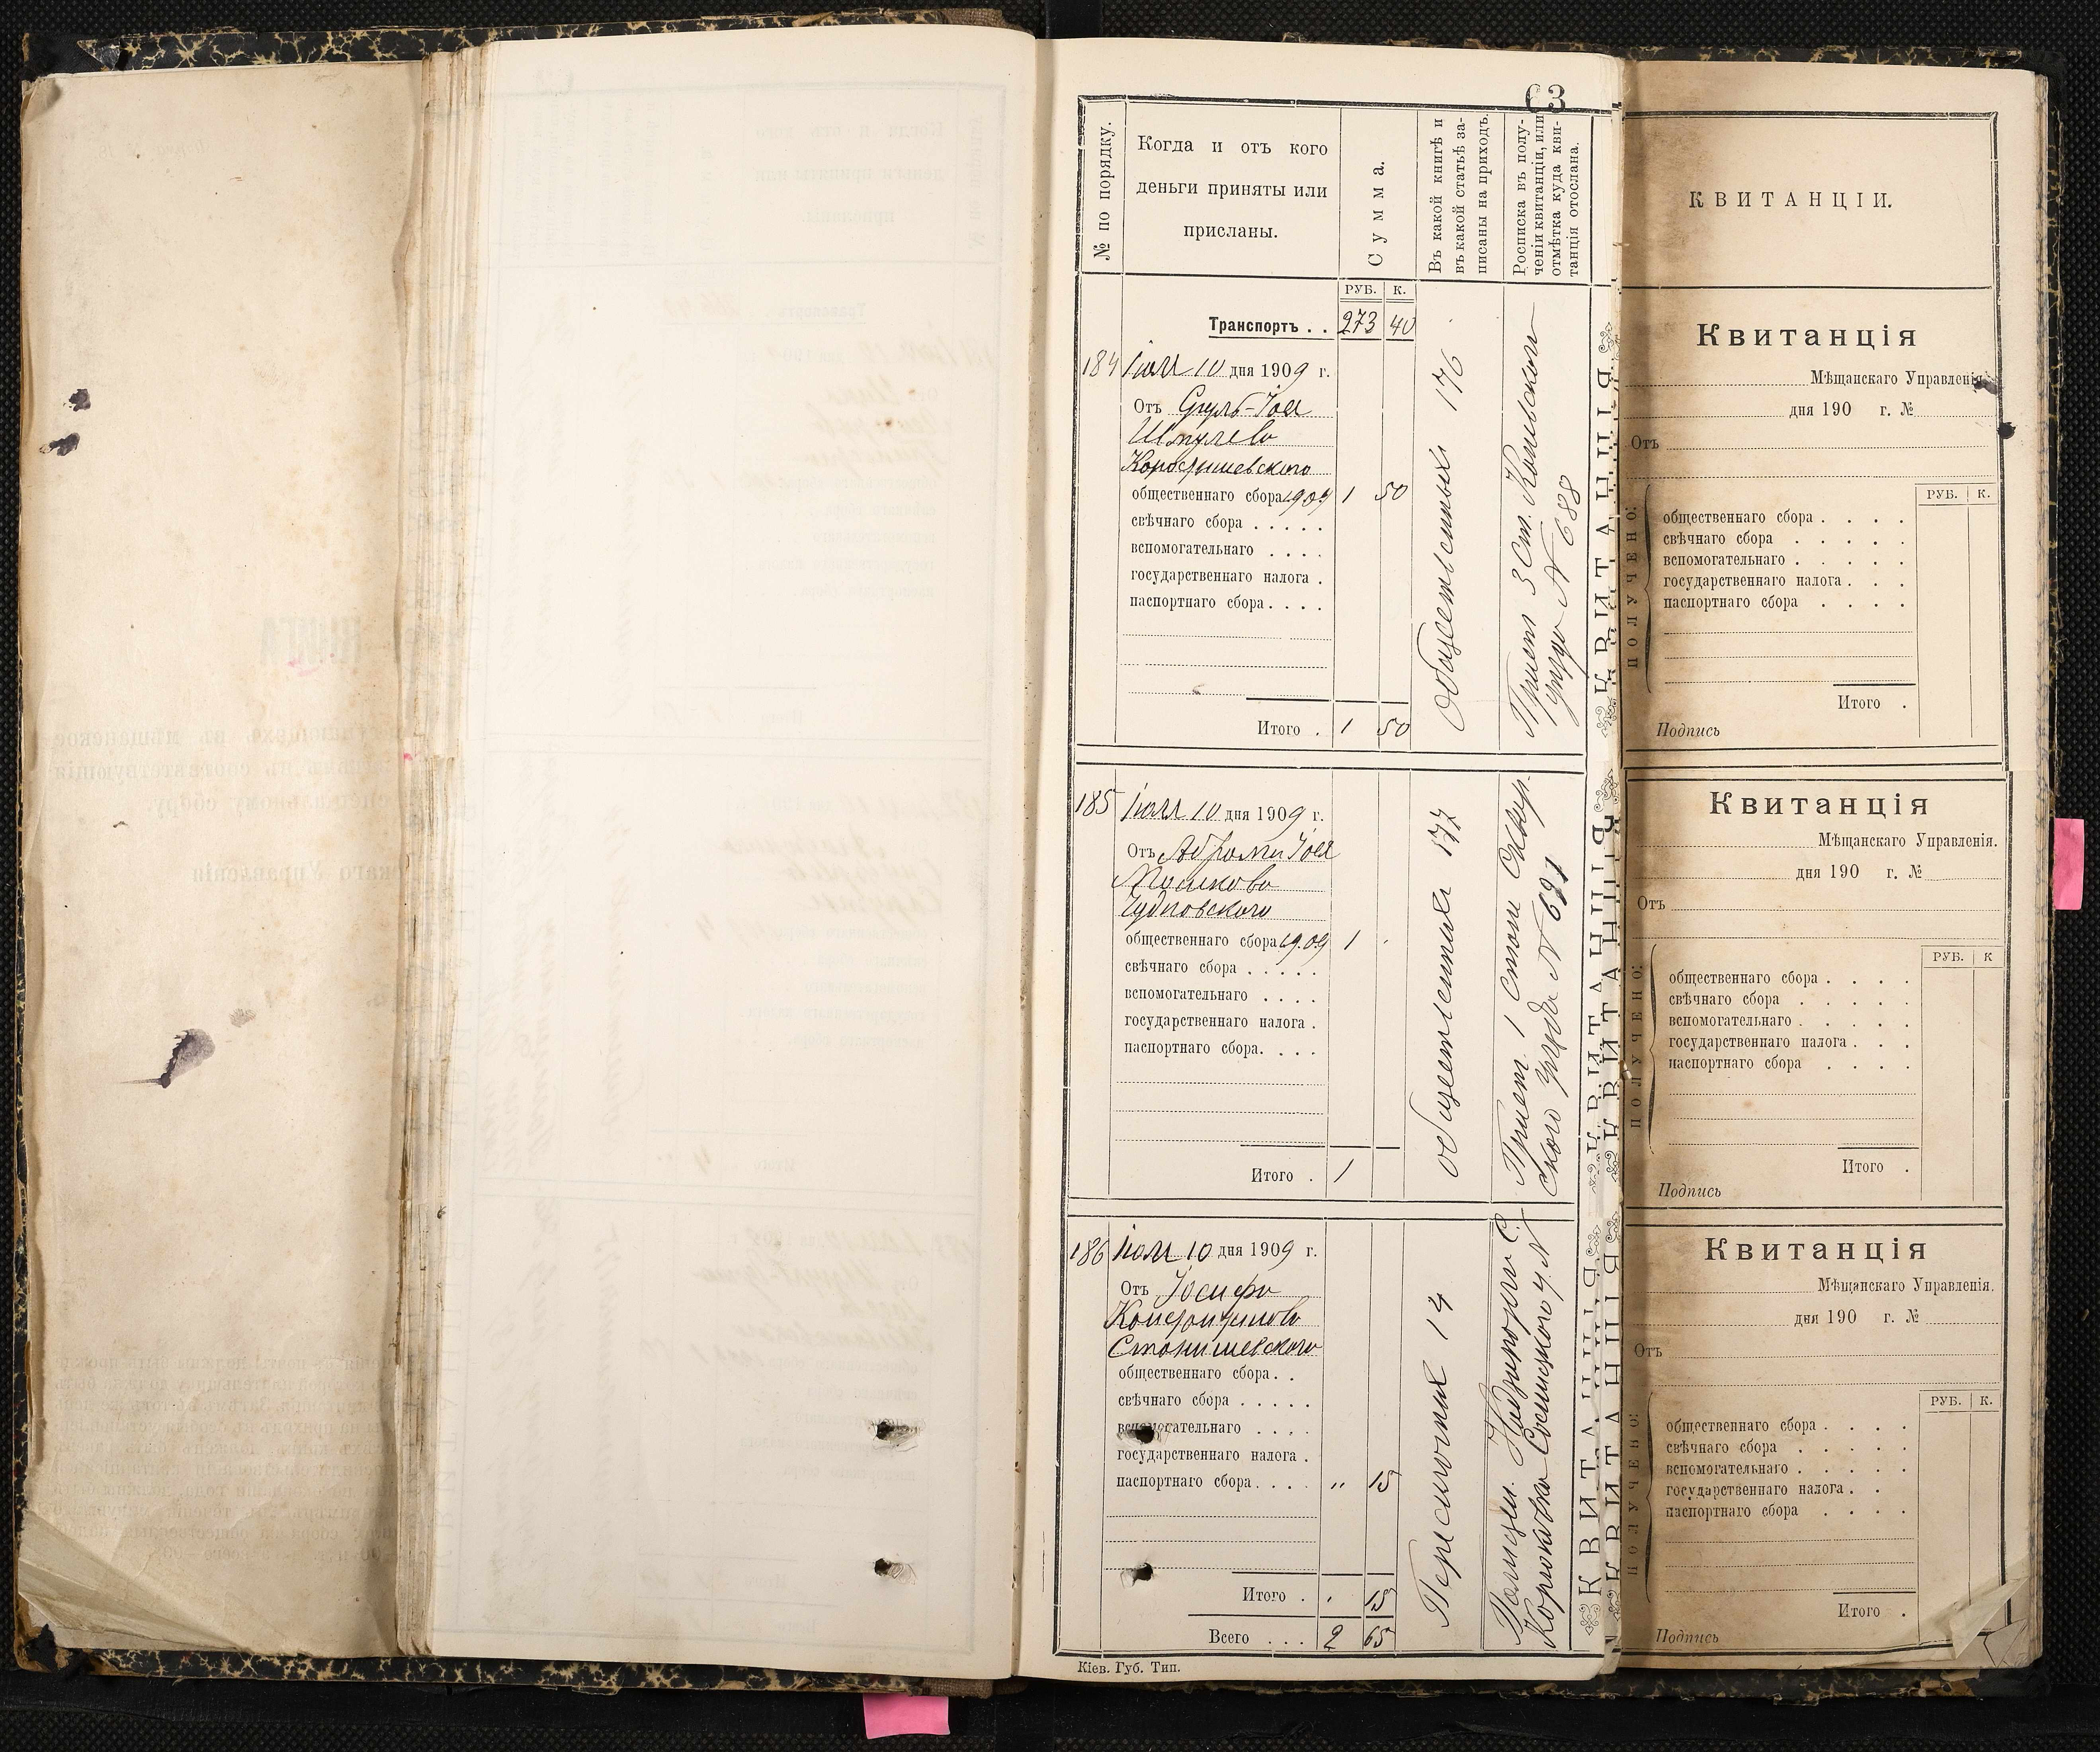 63
№ по порядку.
Когда и отъ кого
деньги приняты или
присланы.
Сумма.
Въ какой книгѣ и
въ какой статьѣ за-
писаны на приходъ.
Росписка въ полу-
ченіи квитанціи, или
отмѣтка куда кви-
танція отослана.
РУБ. К.
Транспортъ . . 273 40
184 Іюля 10 дня 1909 г.
Отъ Сруль-Іося
Шмулева
Коростышевскаго
общественнаго сбора 1909 1 50
свѣчнаго сбора . . . . .
вспомогательнаго . . . .
государственнаго налога .
паспортнаго сбора . . . .
Итого . 1 50
Общественныхъ 176
Прист 3 Ст.
уезда № 688
185 Іюля 10 дня 1909 г.
Отъ Абрама Іося
Мошкова
Чудновскаго
общественнаго сбора 1909 1
свѣчнаго сбора . . . . .
вспомогательнаго . . . .
государственнаго налога .
паспортнаго сбора. . . .
Итого . 1
общественная 177
Прист. 1 стана Сквир-
скаго уезда № 691
186 Іюля 10 дня 1909 г.
Отъ Іосифа
Станишевскаго
общественнаго сбора . .
свѣчнаго сбора . . . . .
вспомогательнаго . . . .
государственнаго налога .
паспортнаго сбора . . . . " 15
Итого . 15
Всего . . . 2 65
Пересылочная 14
Полицей. Надзирателю С.
Корюковка Сосницкаго у. №
Кіев. Губ. Тип.
КВИТАНЦІЯ
КВИТАНЦІЯ
КВИТАНЦІЯ
КВИТАНЦІИ.
Квитанція
Мѣщанскаго Управленія
дня 190 г. №
Отъ
ПОЛУЧЕНО:
РУБ. К.
общественнаго сбора . . . .
свѣчнаго сбора . . . . .
вспомогательнаго . . . . .
государственнаго налога . . .
паспортнаго сбора . . . .
Итого .
Подпись
Квитанція
Мѣщанскаго Управленія.
дня 190 г. №
Отъ
ПОЛУЧЕНО:
РУБ. К
общественнаго сбора . . . .
свѣчнаго сбора . . . . .
вспомогательнаго . . . . .
государственнаго налога . . .
паспортнаго сбора . . . .
Итого .
Подпись
Квитанція
Мѣщанскаго Управленія.
дня 190 г. №
Отъ
ПОЛУЧЕНО:
РУБ. К.
общественнаго сбора . . . .
свѣчнаго сбора . . . . .
вспомогательнаго . . . . .
государственнаго налога . .
паспортнаго сбора . . . .
Итого .
Подпись